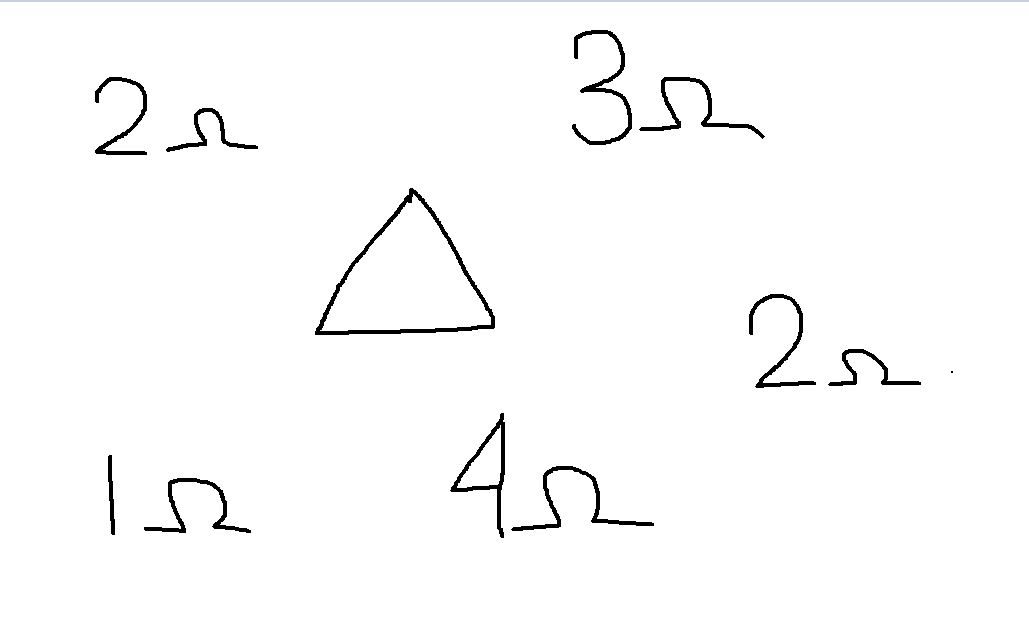 2Ω
3Ω
2Ω
1Ω
4Ω